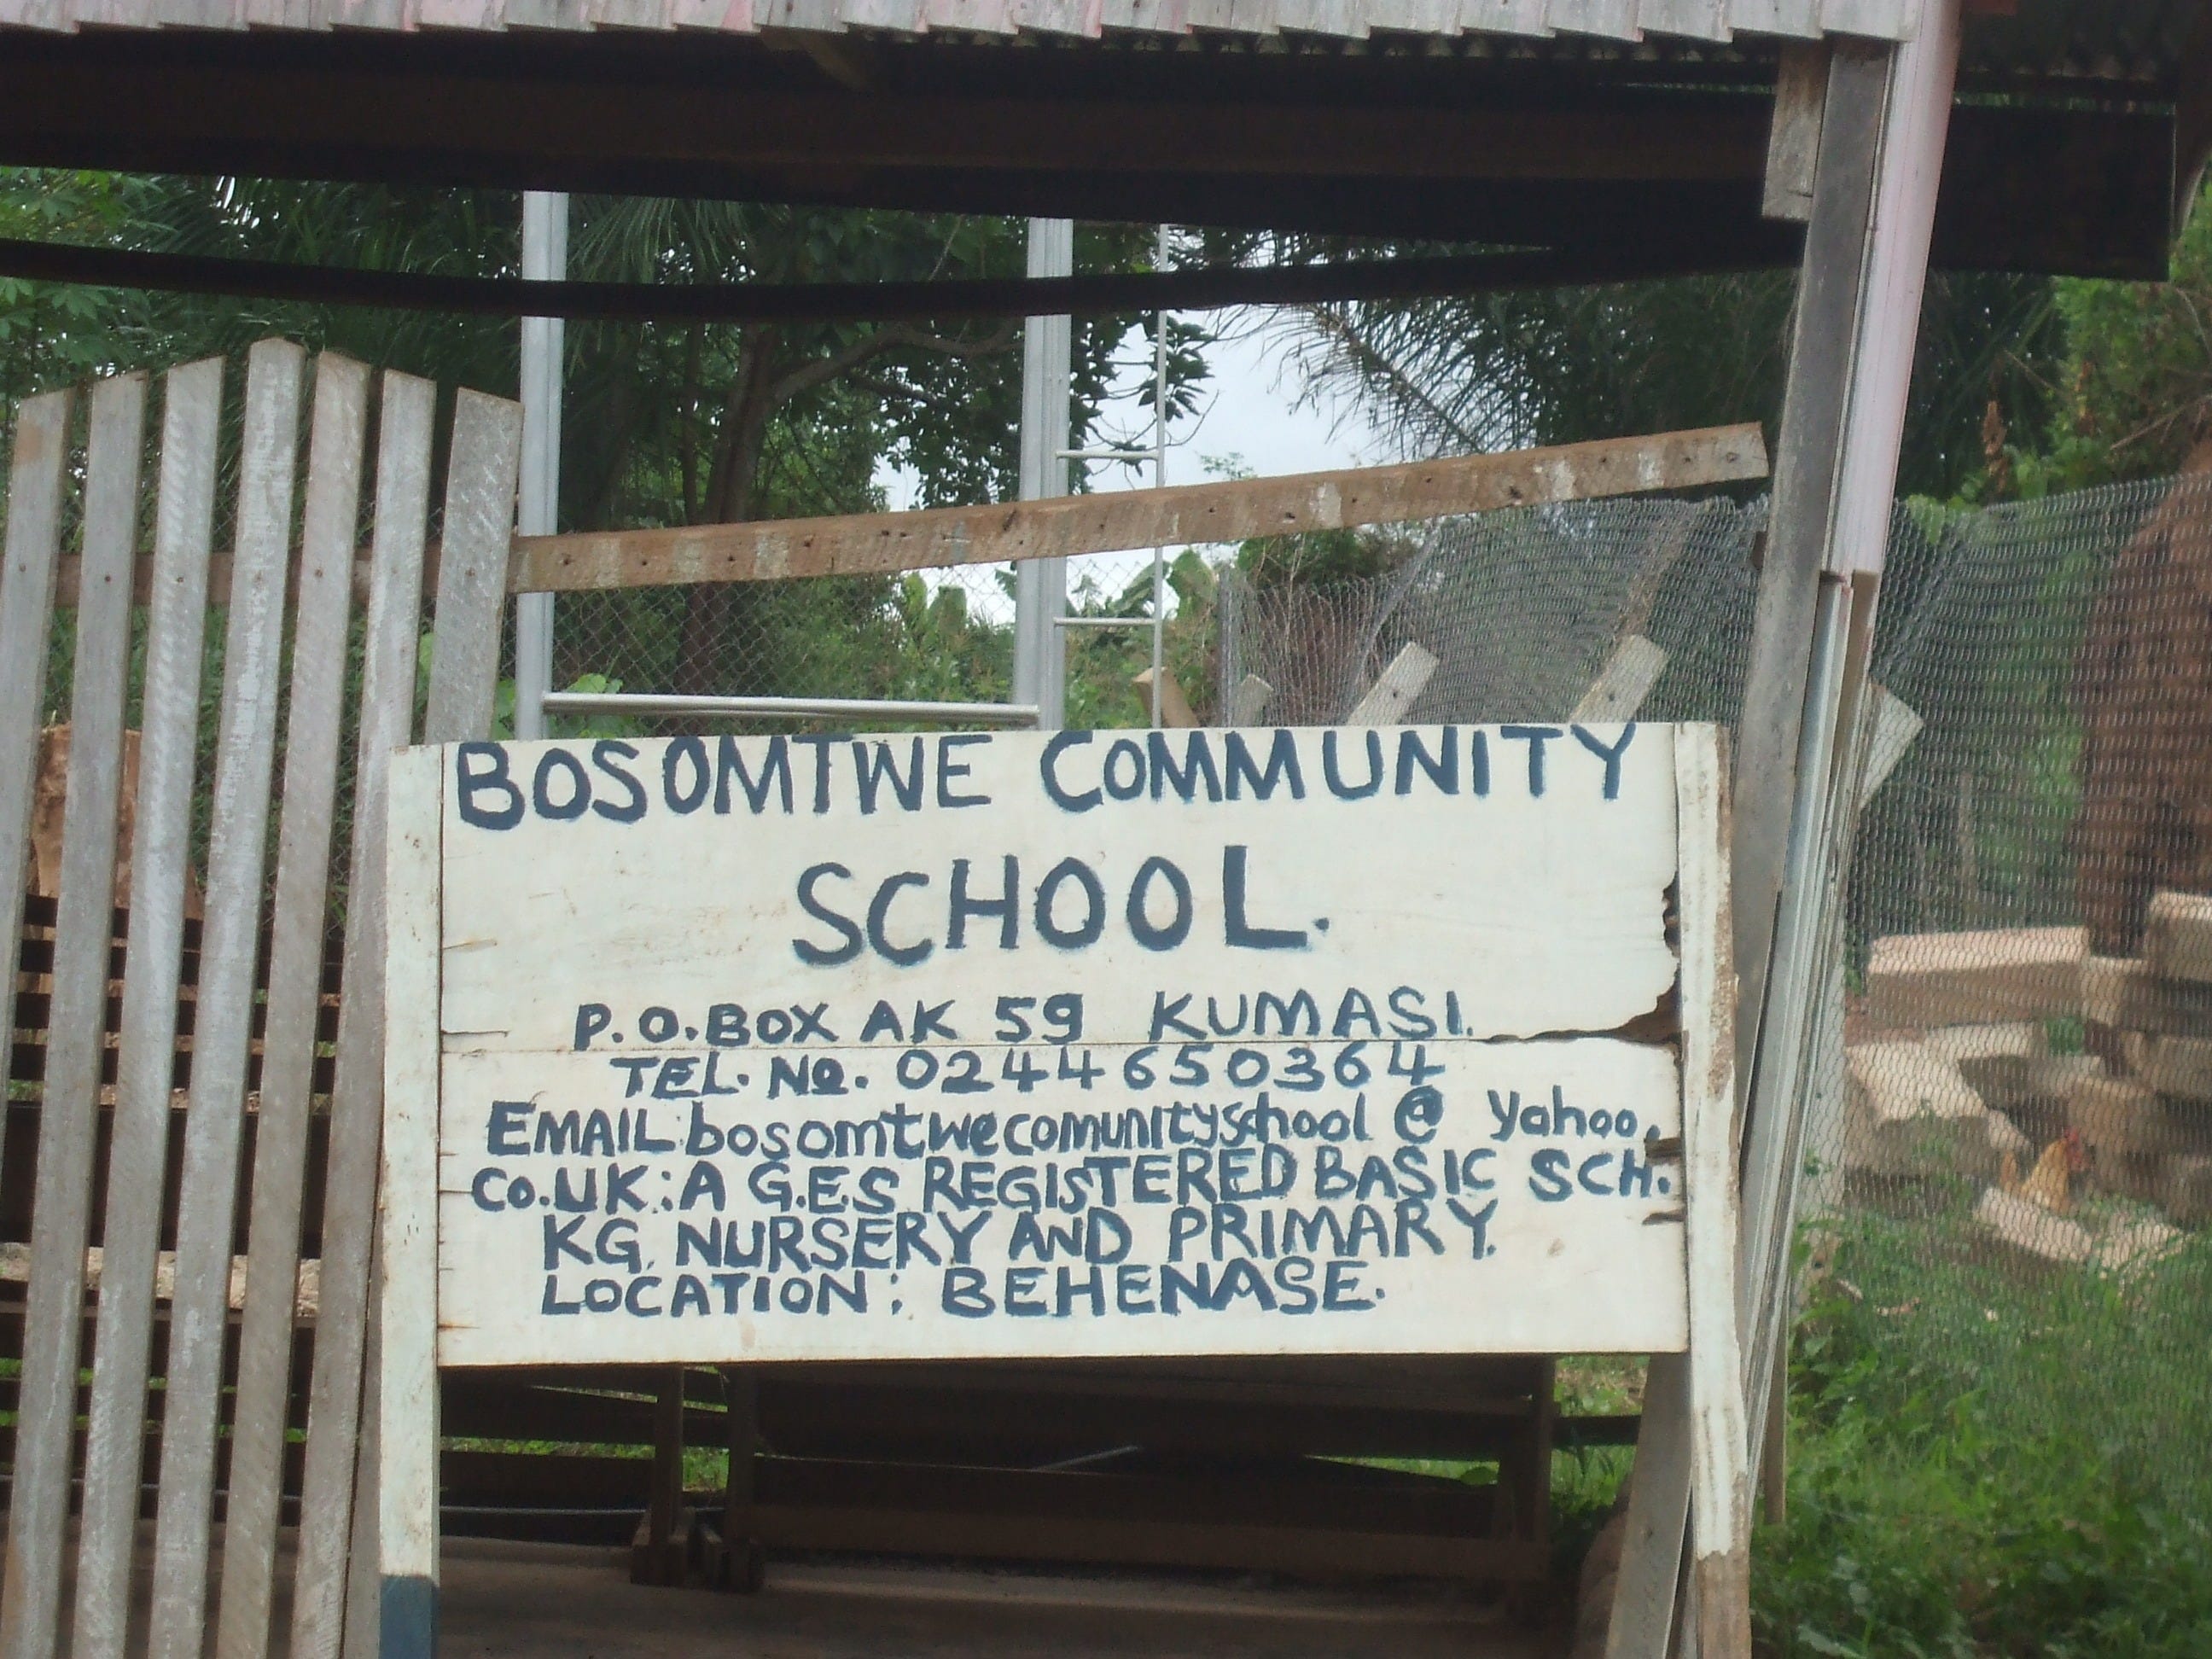 BOSOMTWE COMMUNITY
SCHOOL.
P.O.BOX AK 59 KUMASI.
TEL. No. 0244650364
EMAIL:bosomtwecomunityschool @ yahoo.
Co.UK:A G.E.S REGISTERED BASIC SCH.
KG, NURSERY AND PRIMARY.
LOCATION: BEHENASE.